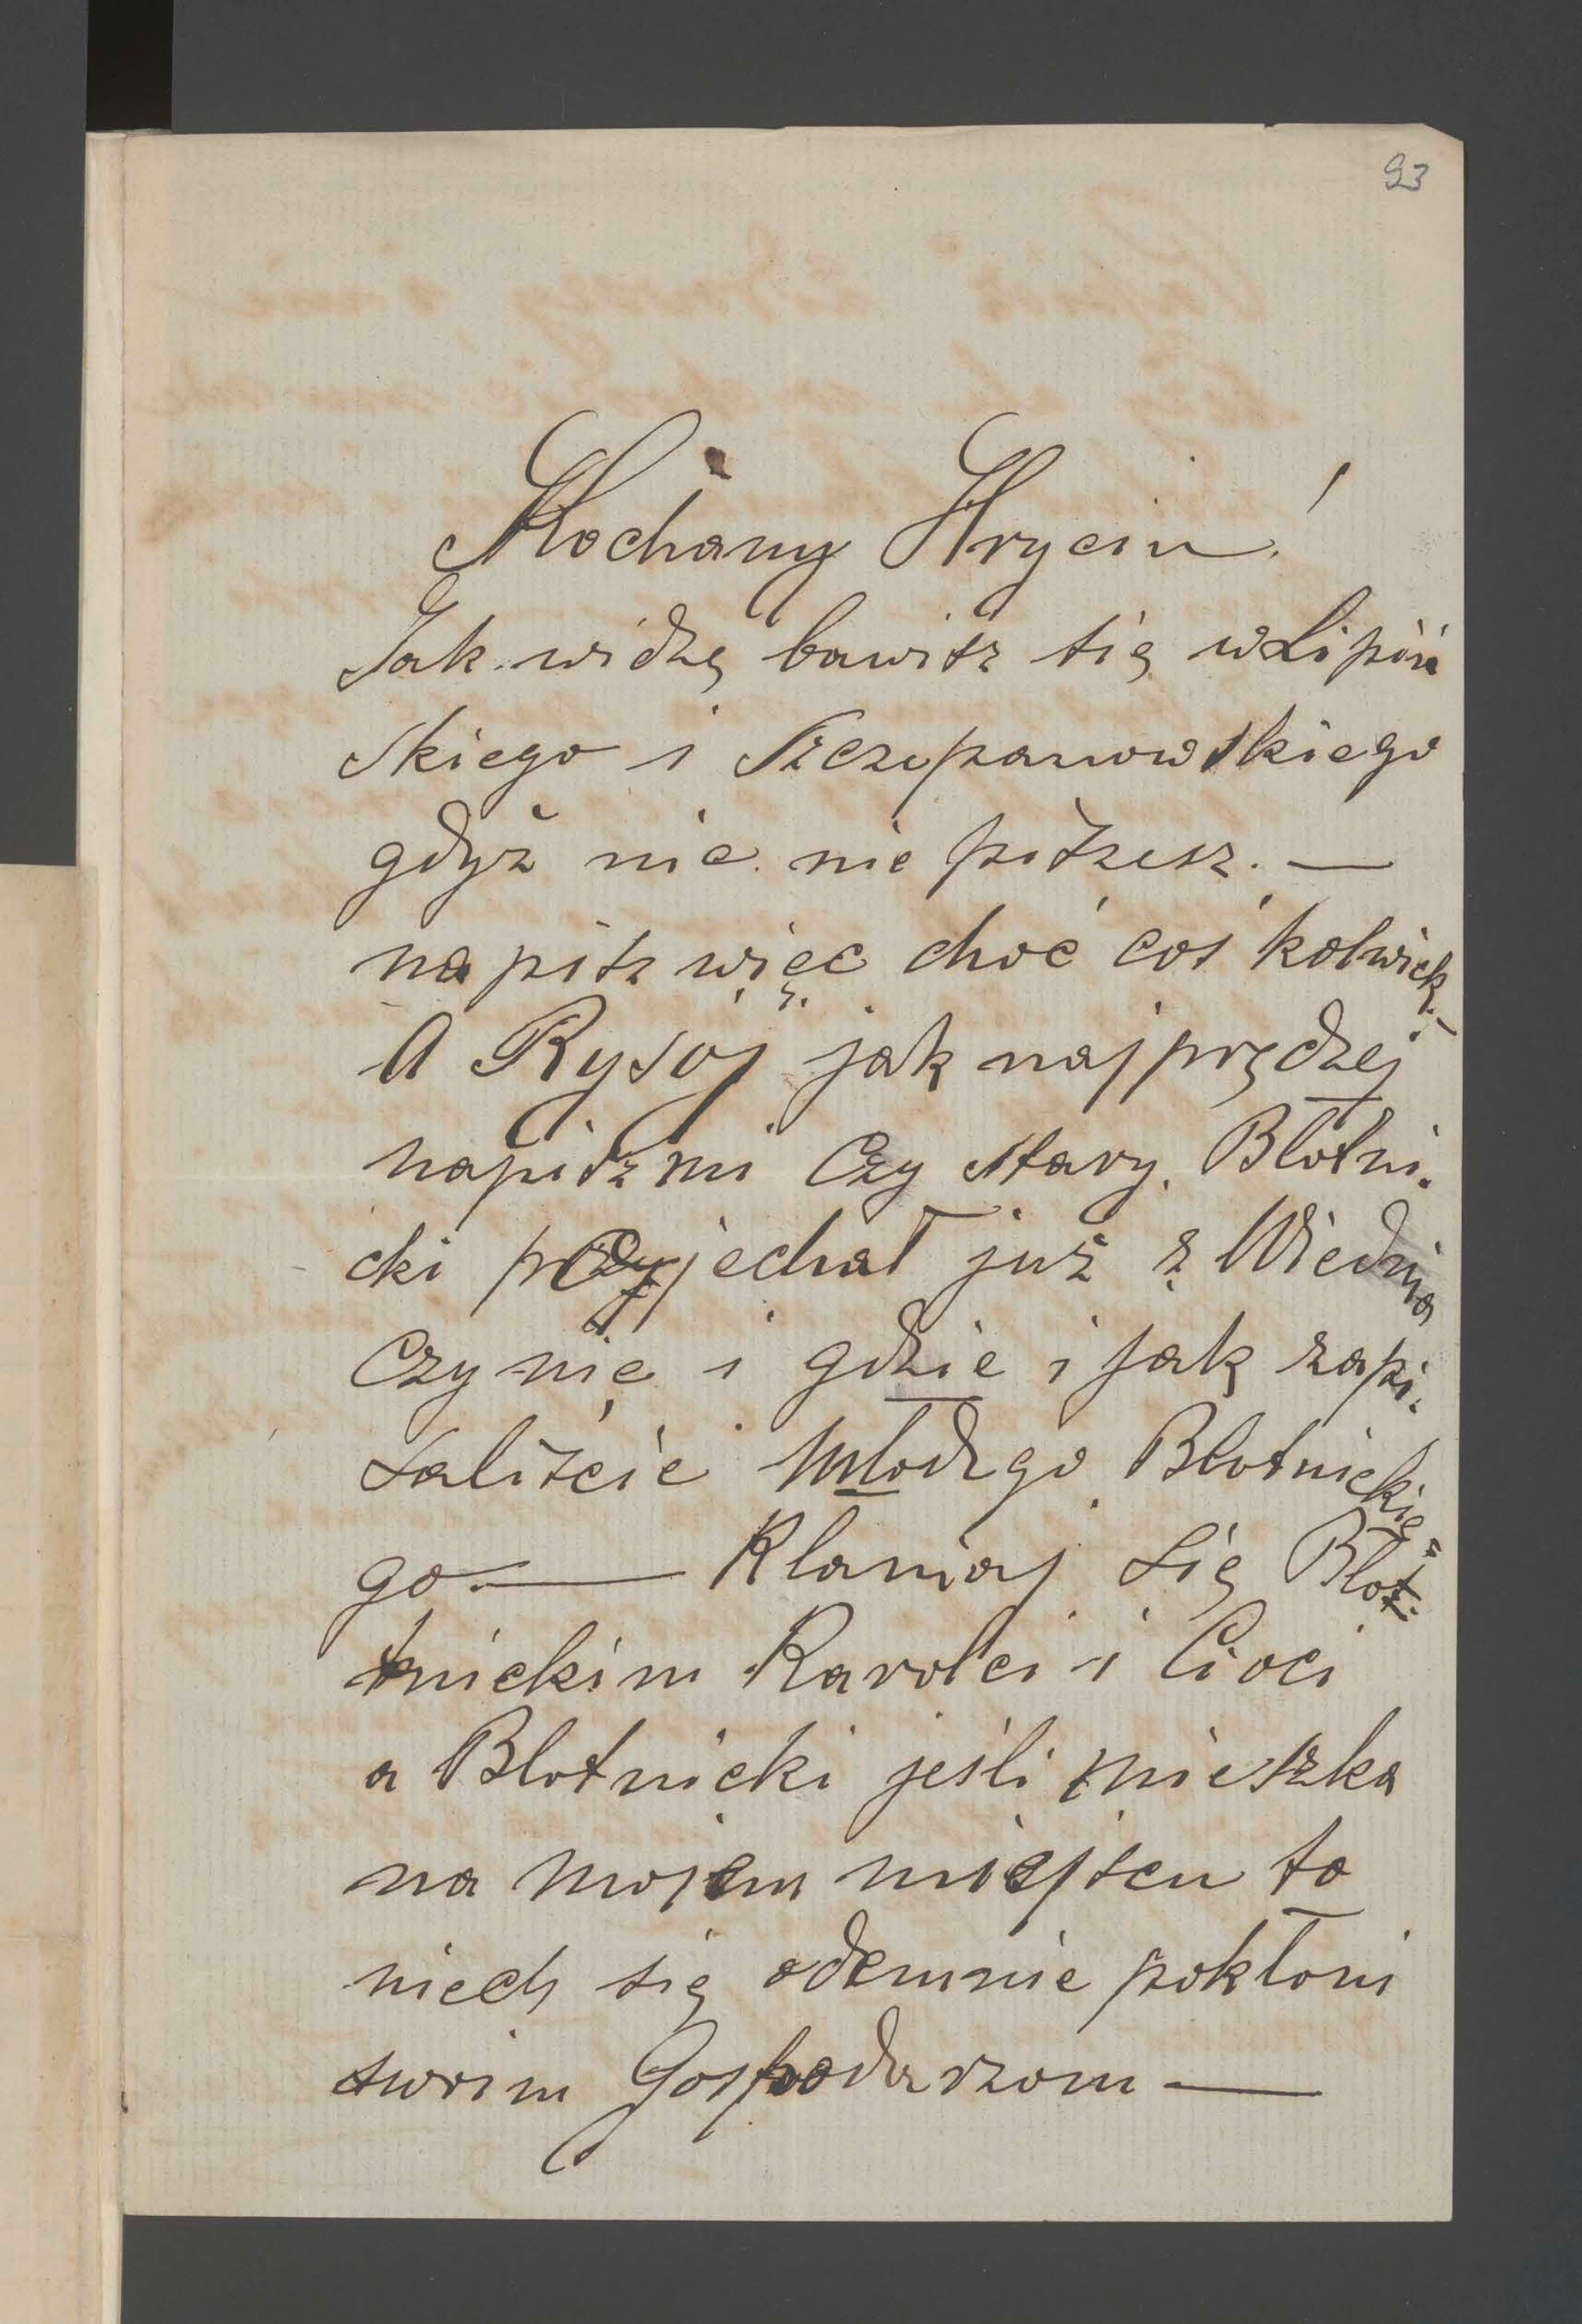 93
Kochany Hryciu!
Jak widzę bawisz się w Lipiń
skiego i Szczepanowskiego
gdyż nic nie piszesz. —
napisz więc choć coś kolwiek. —
A Rysoj jak najprędzej
napisz mi Czy stary Błotni.
cki przyjechał już z Wiednia
Czy nie i gdzie i jak zapi.
saliście młodego Błotnickie=
go. — Kłaniaj się Błot.
nickim Karolci i Cioci
a Błotnicki jeśli mieszka
na mojem miejscu to
niech się odemnie pokłoni
swoim Gospodarzom —